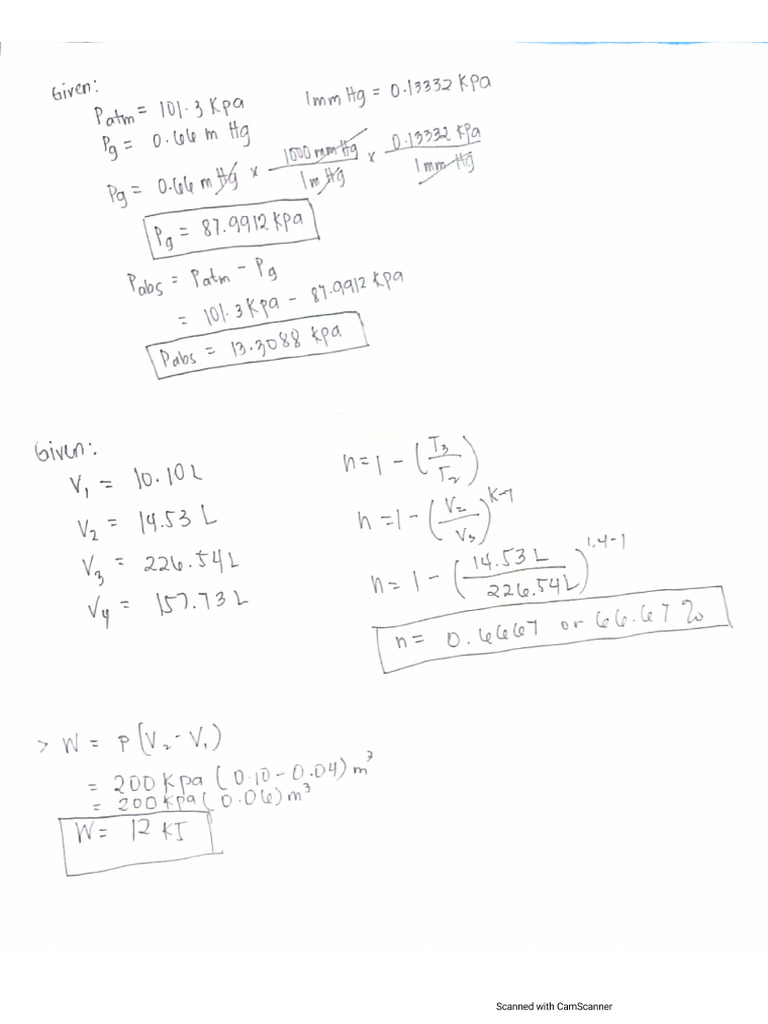 Given:
Patm = 101.3 Kpa
1mm Hg = 0.13332 KPa
Pg = 0.66 m Hg
Pg = 0.66 m Hg x 1000 mm Hg / 1 m Hg x 0.13332 KPa / 1 mm Hg
Pg = 87.9912 Kpa
Pabs = Patm - Pg
= 101.3 Kpa - 87.9912 Kpa
Pabs = 13.3088 Kpa
Given:
V1 = 10.10 L
V2 = 14.53 L
V3 = 226.54 L
V4 = 157.73 L
n = 1 - (T3/T2)
n = 1 - (V2/V3)^K-1
n = 1 - (14.53 L/226.54 L)^1.4-1
n = 0.6667 or 66.67 %
> W = P(V2 - V1)
= 200 Kpa (0.10 - 0.04) m³
= 200 Kpa (0.06) m³
W = 12 KJ
Scanned with CamScanner